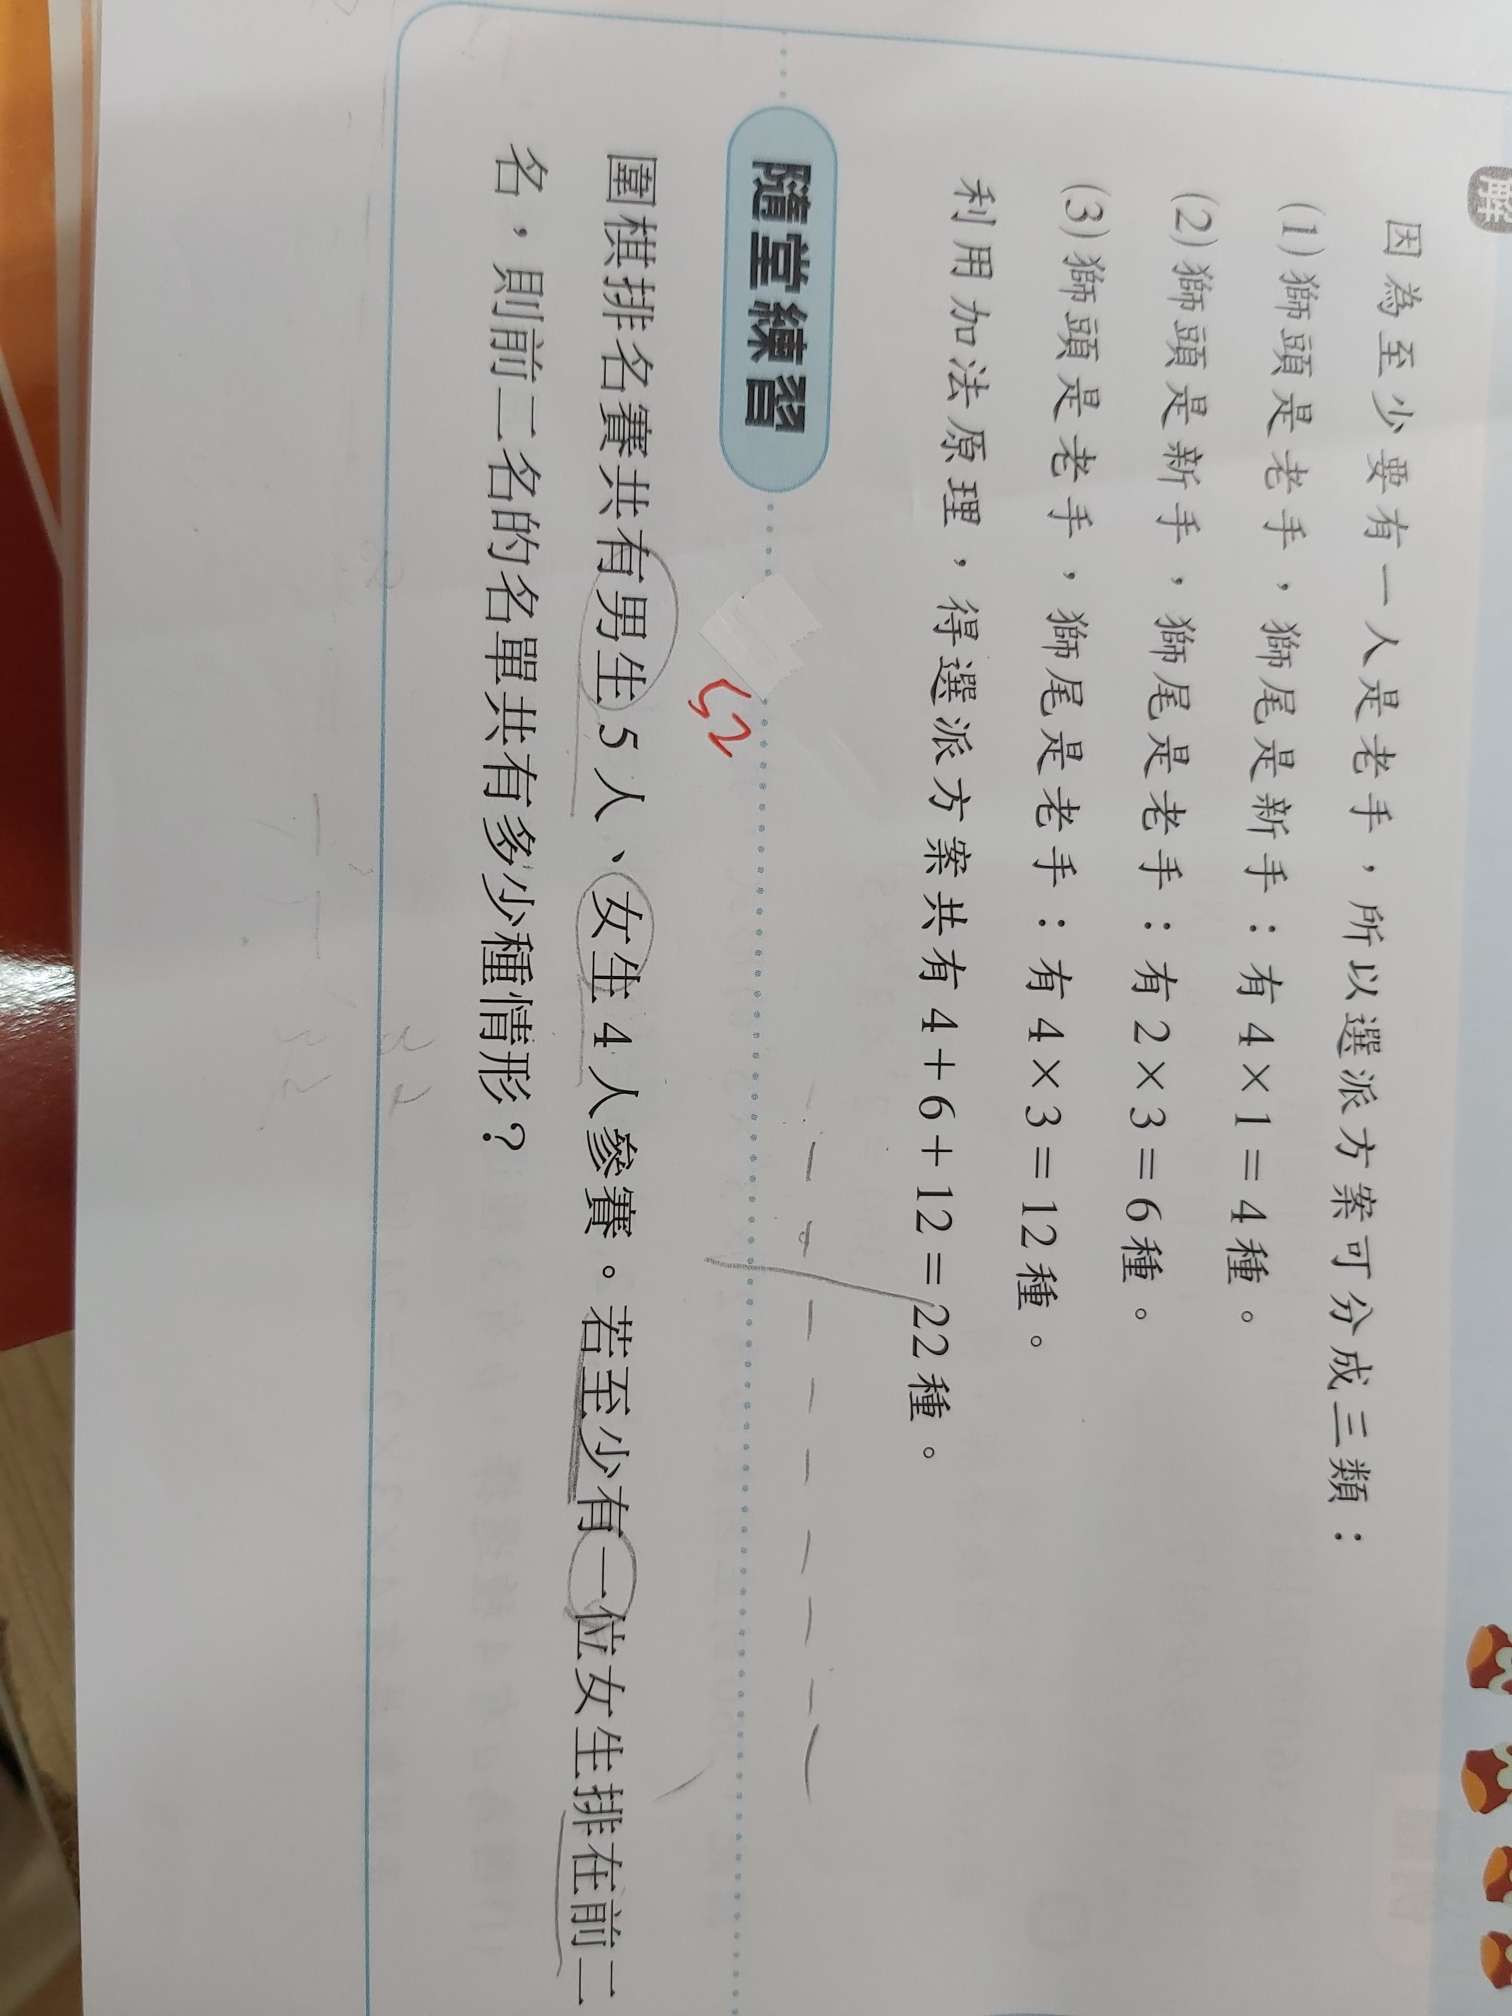 解
因為至少要有一人是老手，所以選派方案可分成三類：
(1)獅頭是老手，獅尾是新手：有4×1=4種。
(2)獅頭是新手，獅尾是老手：有2×3=6種。
(3)獅頭是老手，獅尾是老手：有4×3=12種。
利用加法原理，得選派方案共有4+6+12=22種。
隨堂練習
52
圍棋排名賽共有男生5人、女生4人參賽。若至少有一位女生排在前二
名，則前二名的名單共有多少種情形？